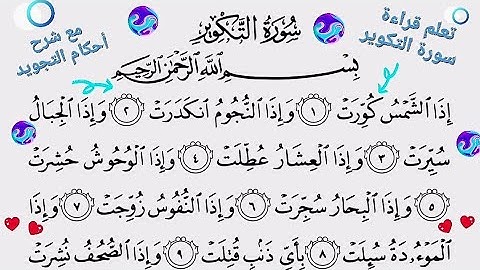 تعلم قراءة
سورة التكوير
سُورَةُ التَّكْوِيرِ
مع شرح
أحكام التجويد
بِسْمِ ٱللَّهِ ٱلرَّحْمَٰنِ ٱلرَّحِيمِ
إِذَا ٱلشَّمْسُ كُوِّرَتْ ١ وَإِذَا ٱلنُّجُومُ ٱنكَدَرَتْ ٢ وَإِذَا ٱلْجِبَالُ
سُيِّرَتْ ٣ وَإِذَا ٱلْعِشَارُ عُطِّلَتْ ٤ وَإِذَا ٱلْوُحُوشُ حُشِرَتْ
٥ وَإِذَا ٱلْبِحَارُ سُجِّرَتْ ٦ وَإِذَا ٱلنُّفُوسُ زُوِّجَتْ ٧ وَإِذَا
ٱلْمَوْءُۥدَةُ سُئِلَتْ ٨ بِأَيِّ ذَنۢبٍ قُتِلَتْ ٩ وَإِذَا ٱلصُّحُفُ نُشِرَتْ